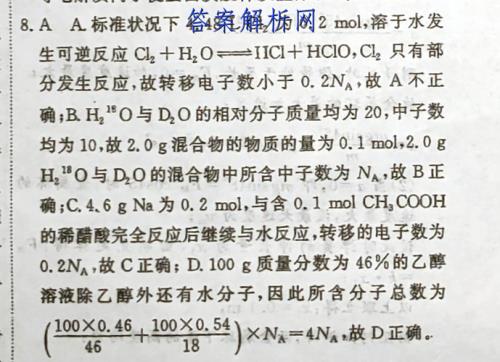 8. A A. 标准状况下 4.48 L Cl₂ 为 0.2 mol,溶于水发
答案解析网
生可逆反应 Cl₂＋H₂O⇌HCl＋HClO,Cl₂ 只有部
分发生反应,故转移电子数小于 0.2Nₐ,故 A 不正
确;B. H₂¹⁸O 与 D₂O 的相对分子质量均为 20,中子数
均为 10,故 2.0 g 混合物的物质的量为 0.1 mol,2.0 g
H₂¹⁸O 与 D₂O 的混合物中所含中子数为 Nₐ,故 B 正
确;C. 4.6 g Na 为 0.2 mol,与含 0.1 mol CH₃COOH
的稀醋酸完全反应后继续与水反应,转移的电子数为
0.2Nₐ,故 C 正确; D. 100 g 质量分数为 46%的乙醇
溶液除乙醇外还有水分子,因此所含分子总数为
(100×0.46/46＋100×0.54/18)×Nₐ＝4Nₐ,故 D 正确。